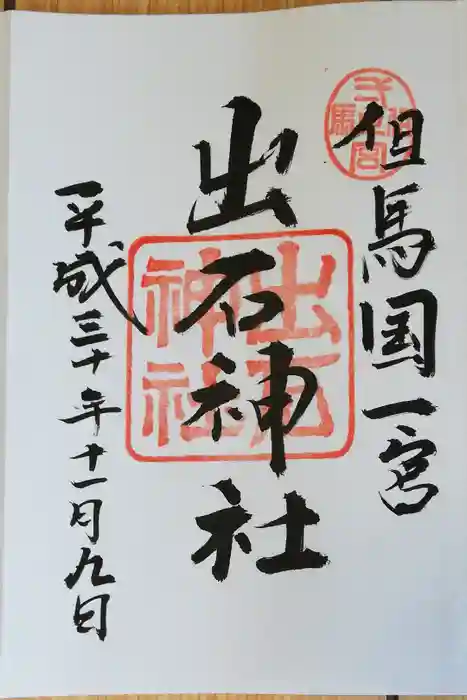 但馬国一宮
出石神社
平成三十年十一月九日
出石
神社